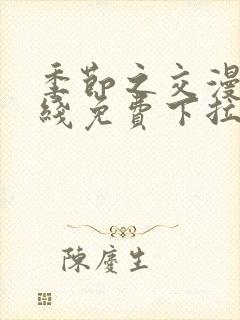 季節之交漫
綫免費下拉
陳慶生